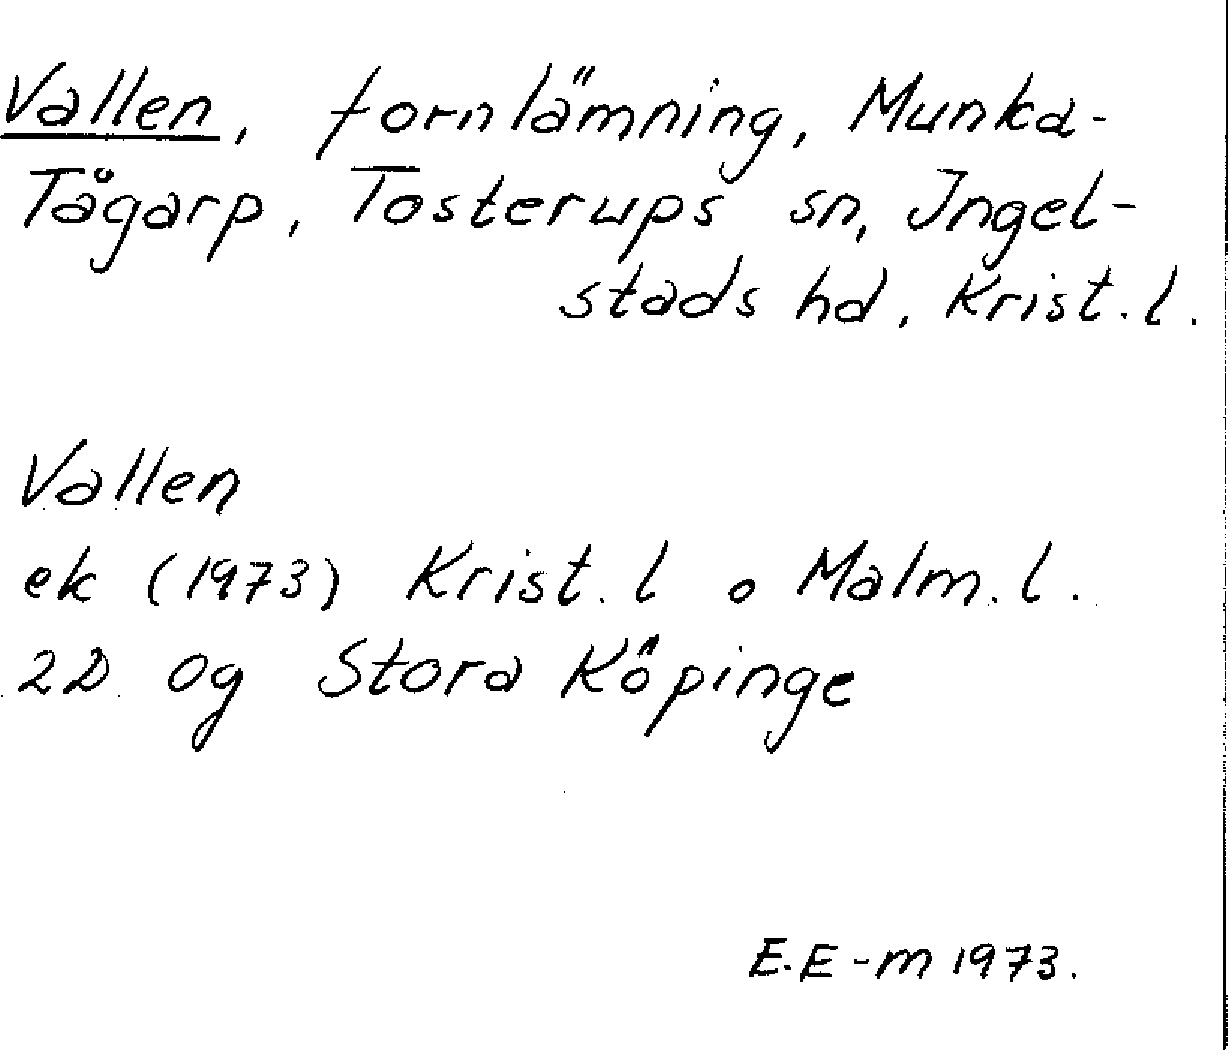 Vallen, fornlämning, Munka-
Tågarp, Tosterups sn, Ingel-
stads hd, Krist. l.
Vallen
ek (1973) Krist. l o Malm. l.
2D 0g Stora Köpinge
E. E-m 1973.